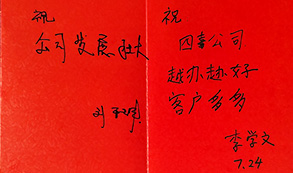 祝
公司发展壮大
祝
四季公司
越办越好
客户多多
李学文
7.24